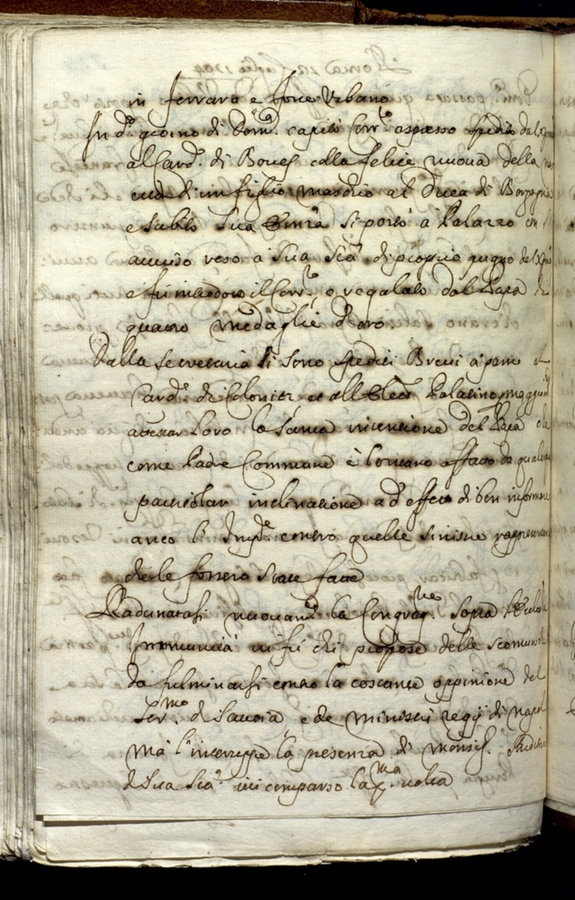 in Ferrara e Forte Urbano
In d.o giorno di Dom.ca capitò Corr.e espresso spedito del
al Card. di Boves colla felice nuova della
cita di un figlio maschio al Duca di Borgogna
e subito Sua Em.za si portò a Palazzo
avviso reso a Sua S.tà di proprio pugno del
e fu introdotto il Corr.e e regalato dal Papa di
quattro medaglie d'oro
Dalla Secretaria si sono spediti Brevi a parte
Card. di Colonitz et all'Elett. Palatino
attestar loro la santa intentione del Papa
come Padre Commune è lontano affatto da qual
particolar inclinatione ad effetto di ben informare
anco l'Imp.e contro quelle sinistre
che le fossero state fatte
Radunatasi nuovam.e la Congreg.ne sopra l'Eccles.
Immunità vi fù chi propose delle scomuniche
da fulminarsi contro la costante oppinione del
Ser.mo di Savoia e de Ministri regij di Napoli
mà l'interruppe la presenza di Monsig.
di Sua S.tà ivi comparso la p.ma volta